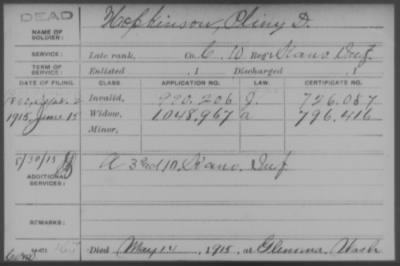 DEAD
NAME OF SOLDIER: Hopkinson, Pliny D.
SERVICE: Late rank, Co. C, 10 Reg't Kans. Inf.
TERM OF SERVICE: Enlisted , 1 Discharged , 1
DATE OF FILING. CLASS. APPLICATION NO. LAW. CERTIFICATE NO.
Invalid, 990.206 J. 726.087
1915, June 15 Widow, 1048,967 a 796,416
Minor,
5/30/15
ADDITIONAL SERVICES: A 3 &
10, Kans. Inf
REMARKS:
Died May 14, 1915, at Wash